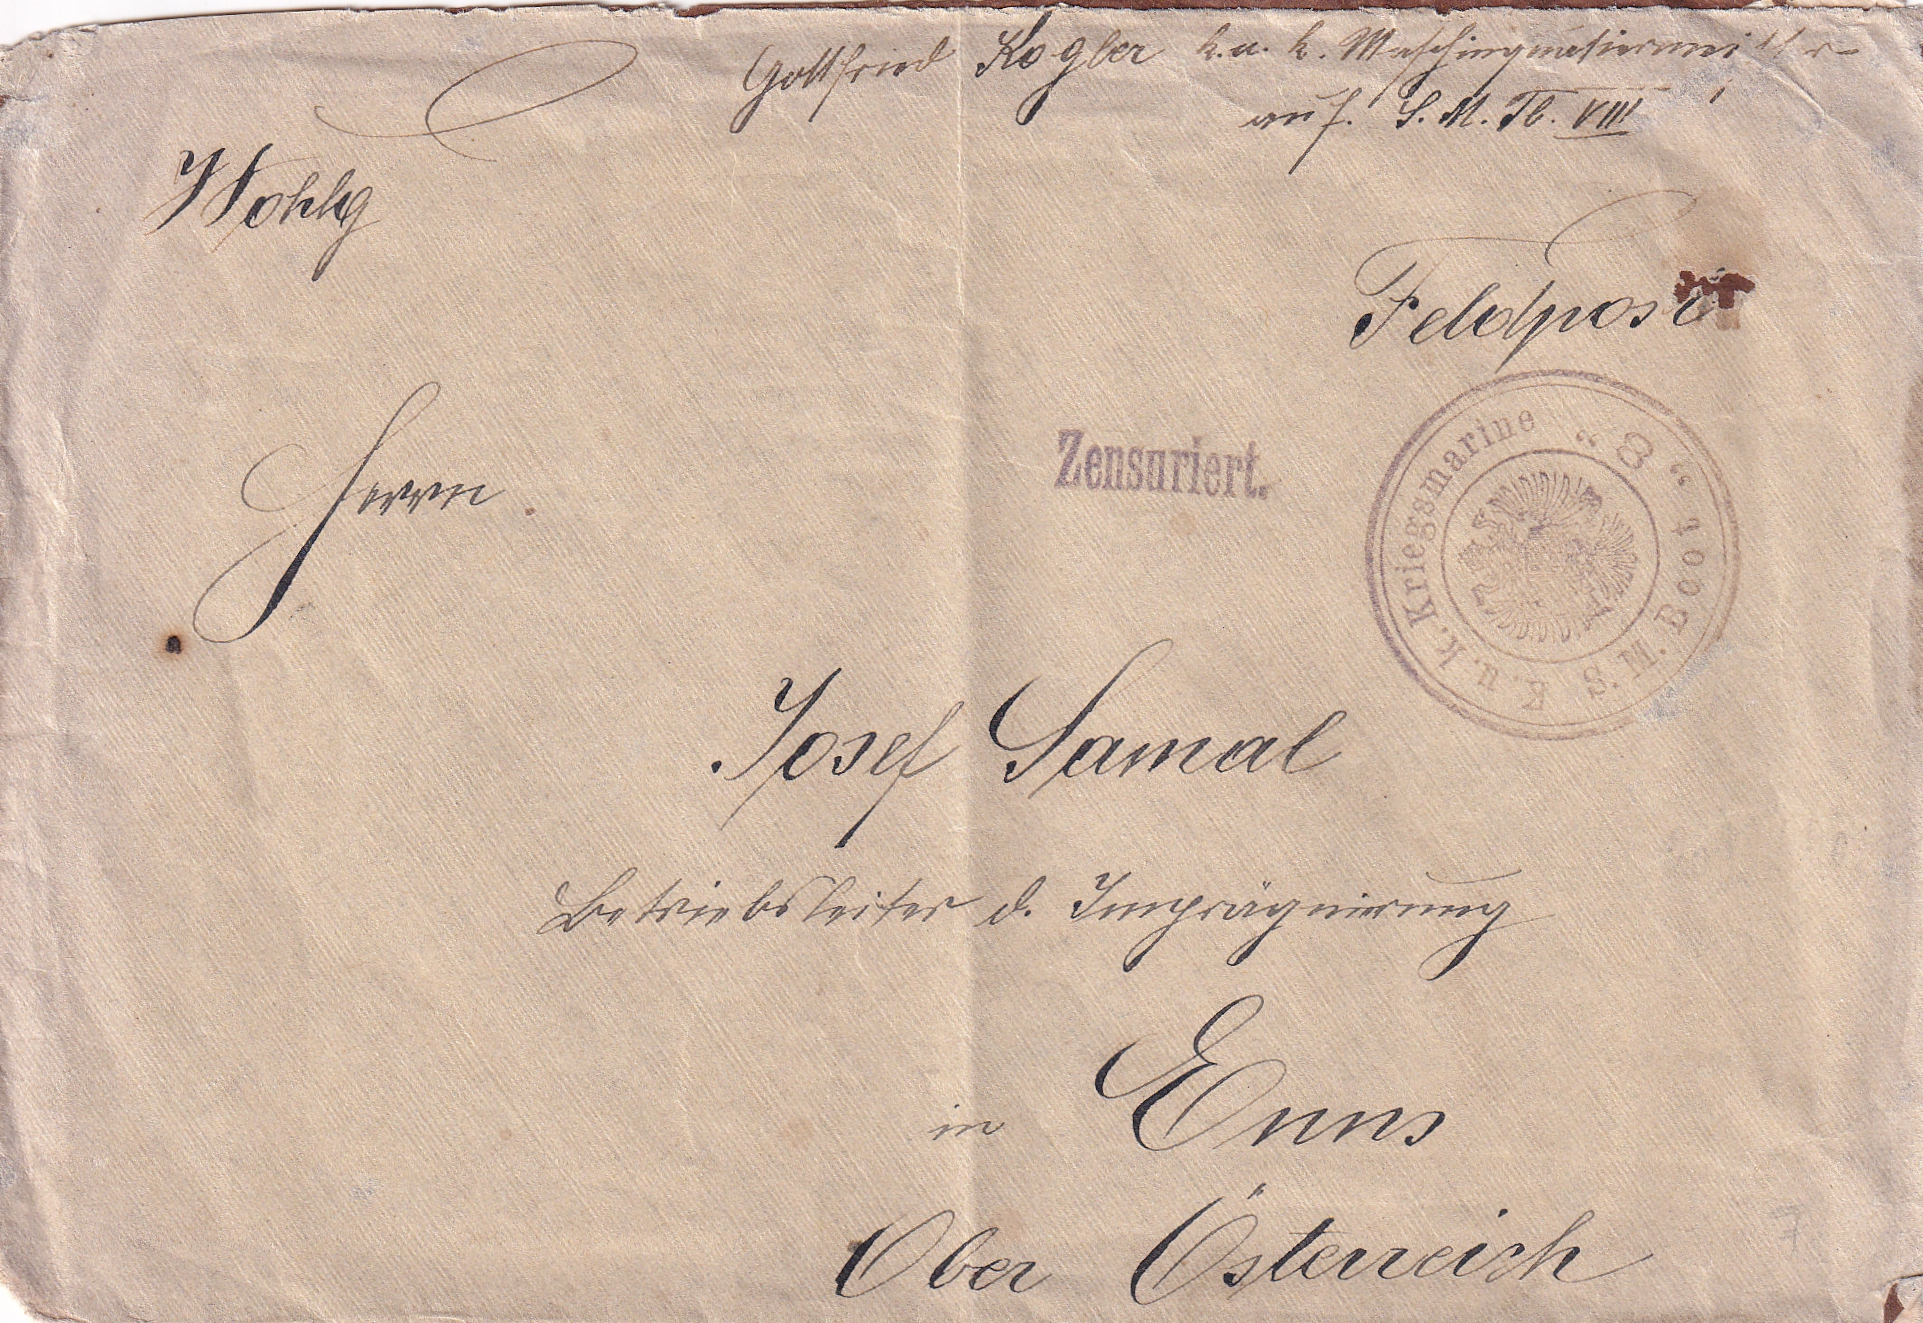 Gottfried Kogler k. u. k. Maschinquatiermeister
auf. S. M. Tb. VIII
Wohlg
Feldpost
Herrn
Zensuriert.
K. u. k. Kriegsmarine „8“
S. M. Boot
Josef Samal
Betriebsleiter d. Imprägnierung
in Enns
Ober Österreich
7